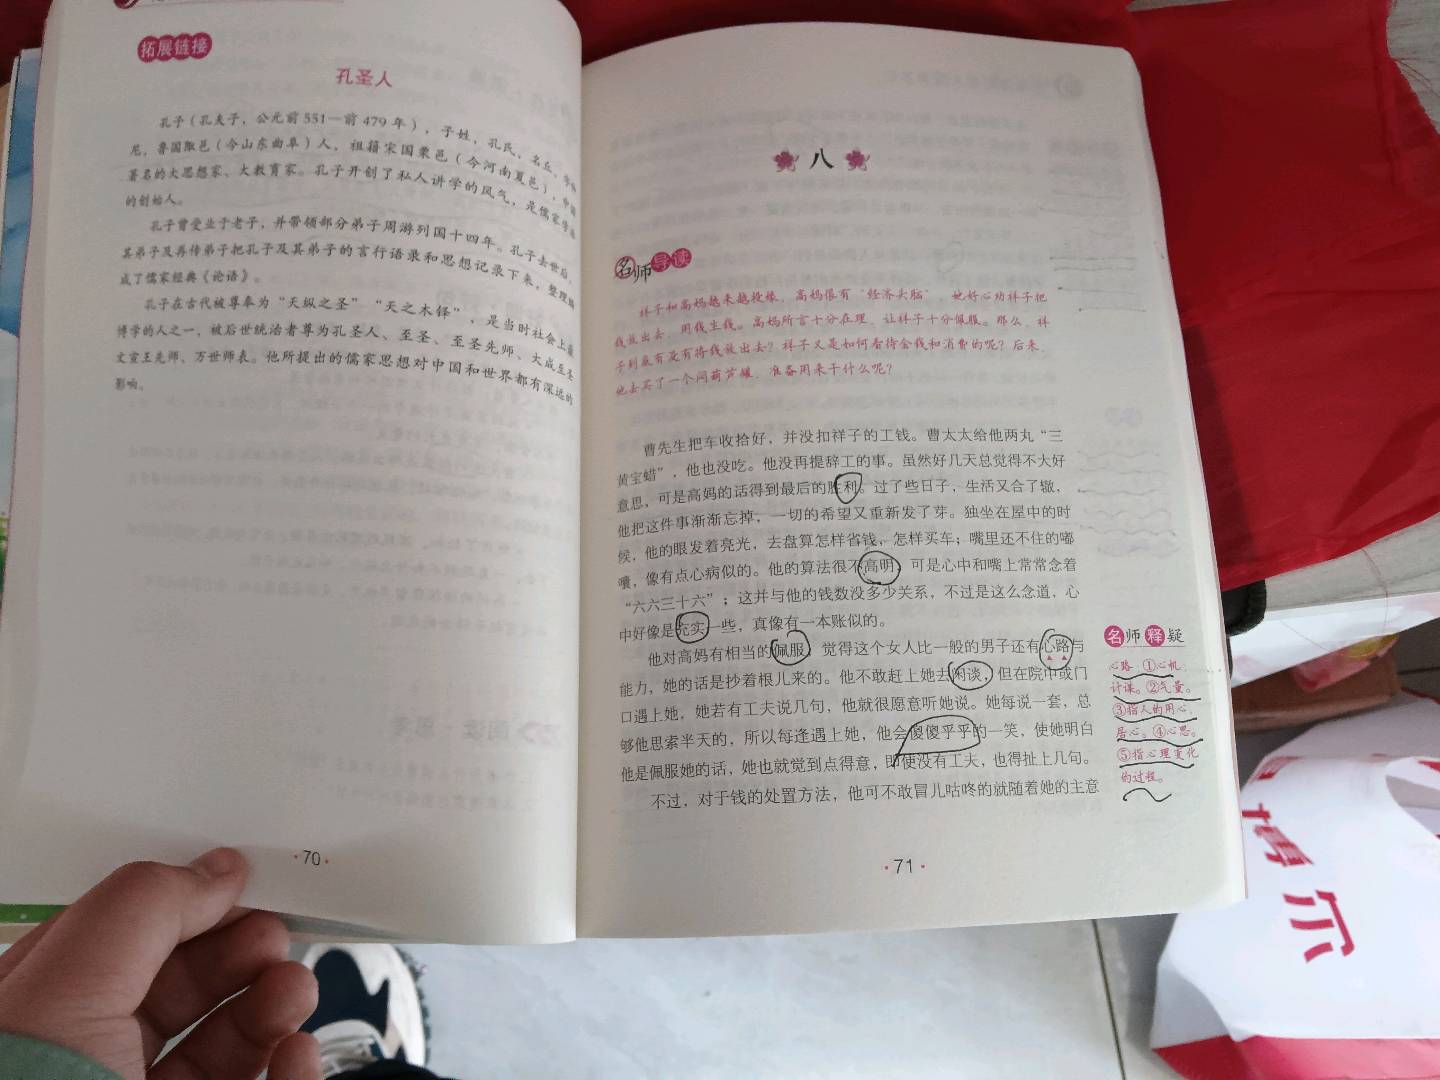 拓展链接
孔圣人
孔子（孔夫子，公元前551—前479年），子姓，孔氏，名丘，字仲
尼，鲁国陬邑（今山东曲阜）人，祖籍宋国栗邑（今河南夏邑），中国
著名的大思想家、大教育家。孔子开创了私人讲学的风气，是儒家学派
的创始人。
孔子曾受业于老子，并带领部分弟子周游列国十四年。孔子去世后，
其弟子及再传弟子把孔子及其弟子的言行语录和思想记录下来，整理编
成了儒家经典《论语》。
孔子在古代被尊奉为“天纵之圣”“天之木铎”，是当时社会上最
博学的人之一，被后世统治者尊为孔圣人、至圣、至圣先师、大成至圣
文宣王先师、万世师表。他所提出的儒家思想对中国和世界都有深远的
影响。
·70·
八
名师导读
祥子和高妈越来越投缘，高妈很有“经济头脑”，她好心劝祥子把
钱放出去，用钱生钱。高妈所言十分在理，让祥子十分佩服。那么，祥
子到底有没有将钱放出去？祥子又是如何看待金钱和消费的呢？后来，
他去买了一个闷葫芦罐，准备用来干什么呢？
曹先生把车收拾好，并没扣祥子的工钱。曹太太给他两丸“三
黄宝蜡”，他也没吃。他没再提辞工的事。虽然好几天总觉得不大好
意思，可是高妈的话得到最后的胜利。过了些日子，生活又合了辙，
他把这件事渐渐忘掉，一切的希望又重新发了芽。独坐在屋中的时
候，他的眼发着亮光，去盘算怎样省钱，怎样买车；嘴里还不住的嘟
囔，像有点心病似的。他的算法很不高明，可是心中和嘴上常常念着
“六六三十六”；这并与他的钱数没多少关系，不过是这么念道，心
中好像是充实一些，真像有一本账似的。
他对高妈有相当的佩服，觉得这个女人比一般的男子还有心路与
能力，她的话是抄着根儿来的。他不敢赶上她去闲谈，但在院中或门
口遇上她，她若有工夫说几句，他就很愿意听她说。她每说一套，总
够他思索半天的，所以每逢遇上她，他会傻傻乎乎的一笑，使她明白
他是佩服她的话，她也就觉到点得意，即使没有工夫，也得扯上几句。
不过，对于钱的处置方法，他可不敢冒儿咕咚的就随着她的主意
名师释疑
心路：①心机；
计谋。②气量。
③指人的用心，
居心。④心思。
⑤指心理变化
的过程。
·71·
博尔